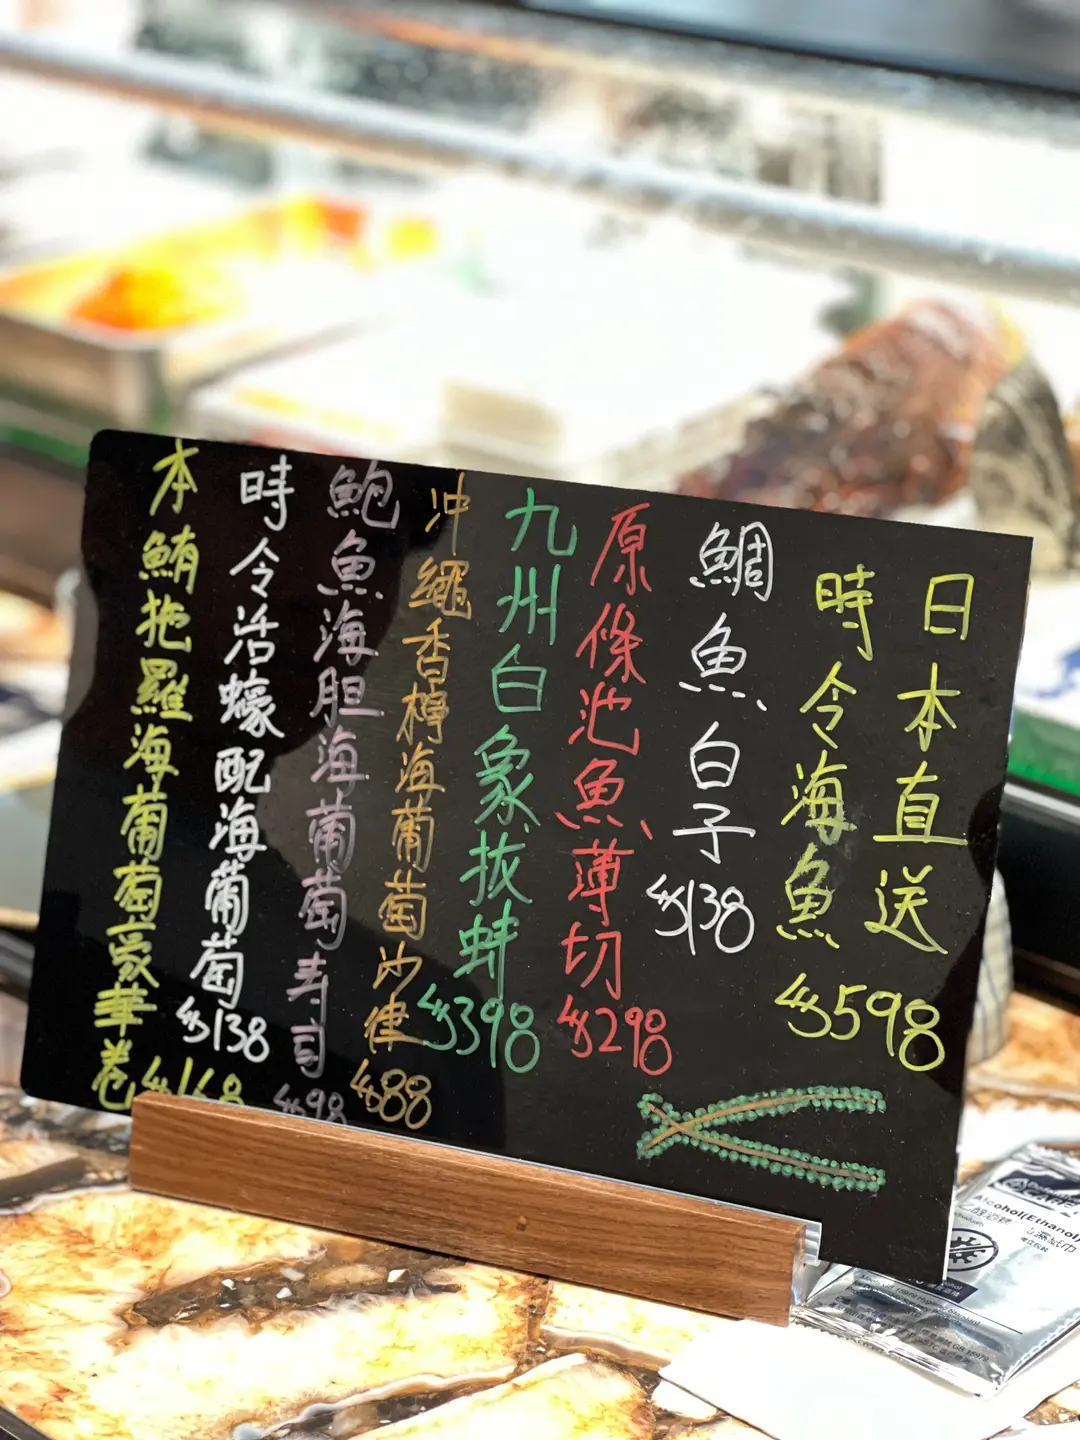 日本直送
時令海魚 $598
鯛魚白子 $138
原條池魚薄切 $298
九州白象拔蚌 $398
沖繩香檸海葡萄沙律 $88
鮑魚海胆海葡萄寿司 $98
時令活蠔配海葡萄 $138
本鮪拖羅海葡萄豪華卷 $168
Alcohol(Ethanol)